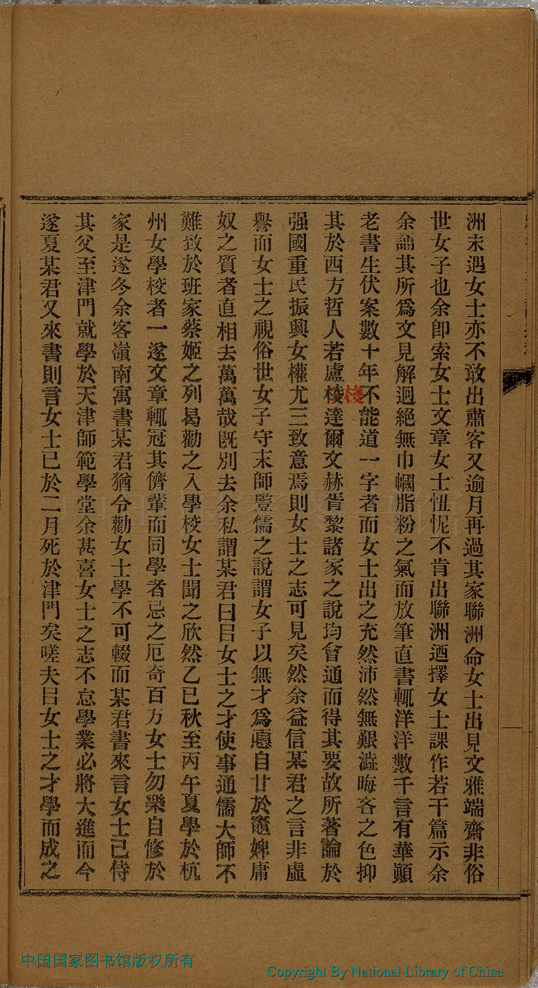 洲未遇女士亦不敢出肅客又逾月再過其家聯洲命女士出見文雅端齋非俗
世女子也余卽索女士文章女士忸怩不肯出聯洲迺擇女士課作若干篇示余
余誦其所爲文見解迥絕無巾幗脂粉之氣而放筆直書輒洋洋數千言有華顚
老書生伏案數十年不能道一字者而女士出之充然沛然無艱澁晦吝之色抑
其於西方哲人若盧梭達爾文赫胥黎諸家之說均會通而得其要故所著論於
强國重民振興女權尤三致意焉則女士之志可見矣然余益信某君之言非虛
譽而女士之視俗世女子守末師豎儒之說謂女子以無才爲德自甘於竈婢庸
奴之質者直相去萬萬哉旣別去余私謂某君曰目女士之才使事通儒大師不
難致於班家蔡姬之列曷勸之入學校女士聞之欣然乙巳秋至丙午夏學於杭
州女學校者一遂文章輒冠其儕輩而同學者忌之厄奇百方女士勿樂自修於
家是遂冬余客嶺南寓書某君猶令勸女士學不可輟而某君書來言女士已侍
其父至津門就學於天津師範學堂余甚喜女士之志不怠學業必將大進而今
遂夏某君又來書則言女士已於二月死於津門矣嗟夫目女士之才學而成之
梭
中国国家图书馆版权所有
Copyright By National Library of China